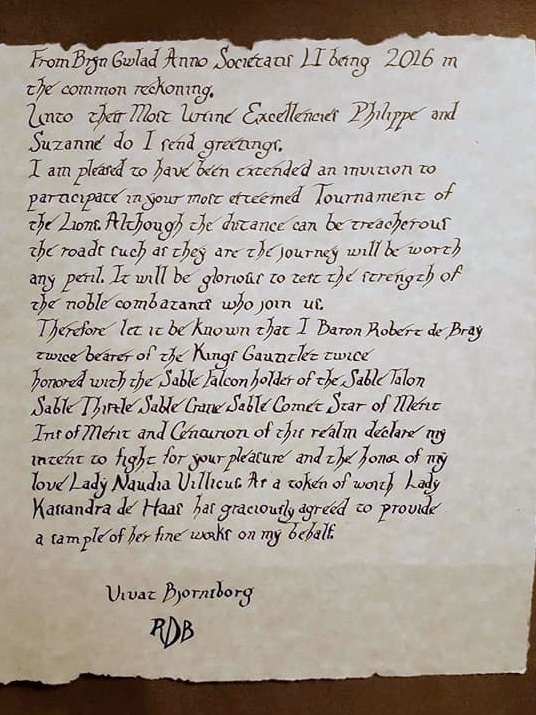 From Bryn Gwlad Anno Societatis LI being 2016 in
the common reckoning.
Unto their Most Ursine Excellencies Philippe and
Suzanne do I send greetings.
I am pleased to have been extended an invition to
participate in your most esteemed Tournament of
the Lions. Although the distance can be treacherous
the roads such as they are the journey will be worth
any peril. It will be glorious to test the strength of
the noble combatants who join us.
Therefore let it be known that I Baron Robert de Bray
twice bearer of the Kings Gauntlet twice
honored with the Sable Falcon holder of the Sable Talon
Sable Thistle Sable Crane Sable Comet Star of Merit
Iris of Merit and Centurion of this realm declare my
intent to fight for your pleasure and the honor of my
love Lady Naudia Villicus. As a token of worth Lady
Kassandra de Haas has graciously agreed to provide
a sample of her fine works on my behalf.
Vivat Bjornsborg
RDB